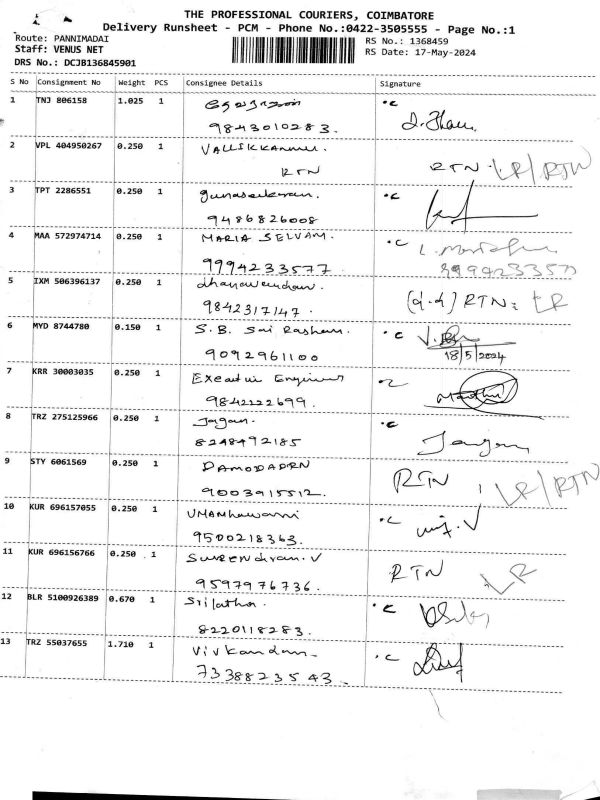 THE PROFESSIONAL COURIERS, COIMBATORE
Delivery Runsheet - PCM - Phone No.:0422-3505555 - Page No.:1
Route: PANNIMADAI
RS No.: 1368459
Staff: VENUS NET
RS Date: 17-May-2024
DRS No.: DCJB136845901
S No Consignment No Weight PCS Consignee Details Signature
1 TNJ 806158 1.025 1
9843010283.
2 VPL 404950267 0.250 1 VALLIKKANNU.
RTN RTN. LR/RTN
3 TPT 2286551 0.250 1 gunasekaran.
9486826008
4 MAA 572974714 0.250 1 MARIA SELVAM.
9994233577 9994233577
5 IXM 506396137 0.250 1
9842317147. RTN: LR
6 MYD 8744780 0.150 1 S.B. Sai
9092961100 18/5/2024
7 KRR 30003035 0.250 1 Engineer
9842122699.
8 TRZ 275125966 0.250 1 Jagan. Jagan
8248492185
9 STY 6061569 0.250 1 DAMODARN RTN, LR/RTN
9003915512.
10 KUR 696157055 0.250 1
9500218363.
11 KUR 696156766 0.250 1 Surendiran.V RTN LR
9597976736.
12 BLR 5100926389 0.670 1 Srilatha.
8220118283.
13 TRZ 55037655 1.710 1
7338823543.